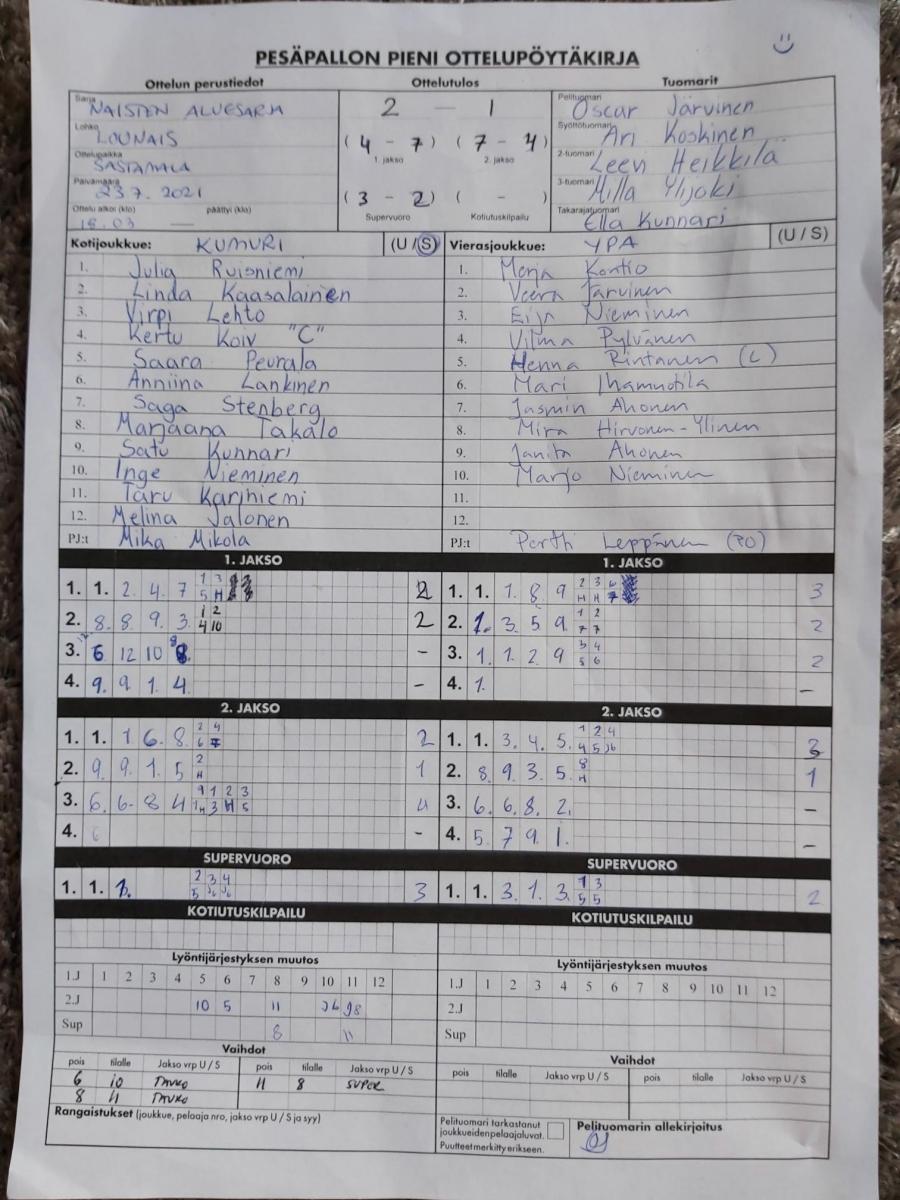 PESÄPALLON PIENI OTTELUPÖYTÄKIRJA
Ottelun perustiedot Ottelutulos Tuomarit
Sarja NAISTEN ALUESARJA 2 – 1 Pelituomari Oscar Järvinen
Lohko LOUNAIS (4 – 7) (7 – 4) Syöttötuomari Ari Koskinen
1. jakso 2. jakso
Ottelupaikka SASTAMALA 2-tuomari Leen Heikkilä
Päivämäärä 23.7. 2021 (3 – 2) ( – ) 3-tuomari Milla Ylijoki
Ottelu alkoi (klo) päättyi (klo) Supervuoro Kotiutuskilpailu Takarajatuomari Ella Kunnari
18.03 —
Kotijoukkue: KUMURI (U / S) Vierasjoukkue: YPA (U / S)
1. Julia Ruisniemi 1. Merja Kontio
2. Linda Kaasalainen 2. Veera Järvinen
3. Virpi Lehto 3. Eija Nieminen
4. Kertu Koiv "C" 4. Vilma Pylvänen
5. Saara Peurala 5. Henna Rintanen (C)
6. Anniina Lankinen 6. Mari Ihamuotila
7. Saga Stenberg 7. Jasmin Ahonen
8. Marjaana Takalo 8. Mira Hirvonen-Ylinen
9. Satu Kunnari 9. Janita Ahonen
10. Inge Nieminen 10. Marjo Nieminen
11. Taru Karjniemi 11.
12. Melina Salonen 12.
PJ:t Mika Mikola PJ:t Pertti Leppänen (PO)
1. JAKSO 1. JAKSO
1. 1. 2. 4. 7 1 3 5 H 2 1. 1. 1. 8. 9 2 3 6 H H 7 3
2. 8. 8. 9. 3. 1 2 4 10 2 2. 1. 3. 5. 9. 1 2 7 7 2
3. 6 12 10 8 – 3. 1. 1. 2. 9 3 4 5 6 2
4. 9. 9. 1. 4. – 4. 1. –
2. JAKSO 2. JAKSO
1. 1. 1 6. 8. 2 4 6 7 2 1. 1. 3. 4. 5. 1 2 4 4 5 J6 3
2. 9. 9. 1. 5 2 H 1 2. 8. 9. 3. 5. 8 H 1
3. 6. 6. 8 4 9 1 2 3 1H 3 H 5 4 3. 6. 6. 8. 2. –
4. 6 – 4. 5. 7 9 1. –
SUPERVUORO SUPERVUORO
1. 1. 1. 2 3 4 5 J6 J6 3 1. 1. 3. 1. 3. 1 3 5 5 2
KOTIUTUSKILPAILU KOTIUTUSKILPAILU
Lyöntijärjestyksen muutos Lyöntijärjestyksen muutos
1.J 1 2 3 4 5 6 7 8 9 10 11 12 1.J 1 2 3 4 5 6 7 8 9 10 11 12
2.J 10 5 11 J6 J8 2.J
Sup 8 11 Sup
Vaihdot Vaihdot
pois tilalle Jakso vrp U / S pois tilalle Jakso vrp U / S pois tilalle Jakso vrp U / S pois tilalle Jakso vrp U / S
6 10 TAUKO 11 8 SUPER
8 11 TAUKO
Rangaistukset (joukkue, pelaaja nro, jakso vrp U / S ja syy) Pelituomari tarkastanut joukkueiden pelaajaluvat. Pelituomarin allekirjoitus
Puutteet merkitty erikseen.